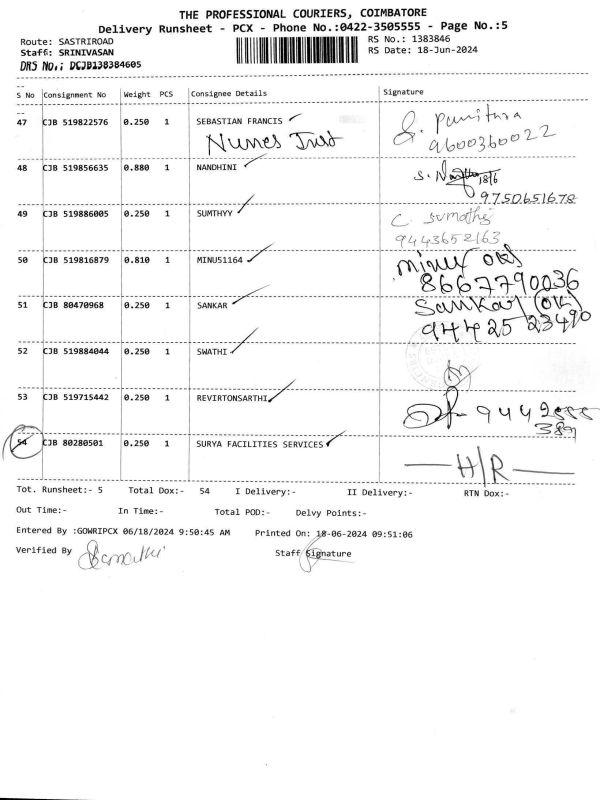 THE PROFESSIONAL COURIERS, COIMBATORE
Delivery Runsheet - PCX - Phone No.:0422-3505555 - Page No.:5
Route: SASTRIROAD RS No.: 1383846
Staff: SRINIVASAN RS Date: 18-Jun-2024
DRS No.: DCJB138384605
S No Consignment No Weight PCS Consignee Details Signature
47 CJB 519822576 0.250 1 SEBASTIAN FRANCIS
Nunes Trust
9600360022
48 CJB 519856635 0.880 1 NANDHINI
18/6
9750651678
49 CJB 519886005 0.250 1 SUMTHYY C. Sumathi
9443652163
50 CJB 519816879 0.810 1 MINU51164
8667790036
51 CJB 80470968 0.250 1 SANKAR Sankar (OK)
94425 23490
52 CJB 519884044 0.250 1 SWATHI
53 CJB 519715442 0.250 1 REVIRTONSARTHI
54 CJB 80280501 0.250 1 SURYA FACILITIES SERVICES
H/R
Tot. Runsheet:- 5 Total Dox:- 54 I Delivery:- II Delivery:- RTN Dox:-
Out Time:- In Time:- Total POD:- Delvy Points:-
Entered By :GOWRIPCX 06/18/2024 9:50:45 AM Printed On: 18-06-2024 09:51:06
Verified By Staff Signature